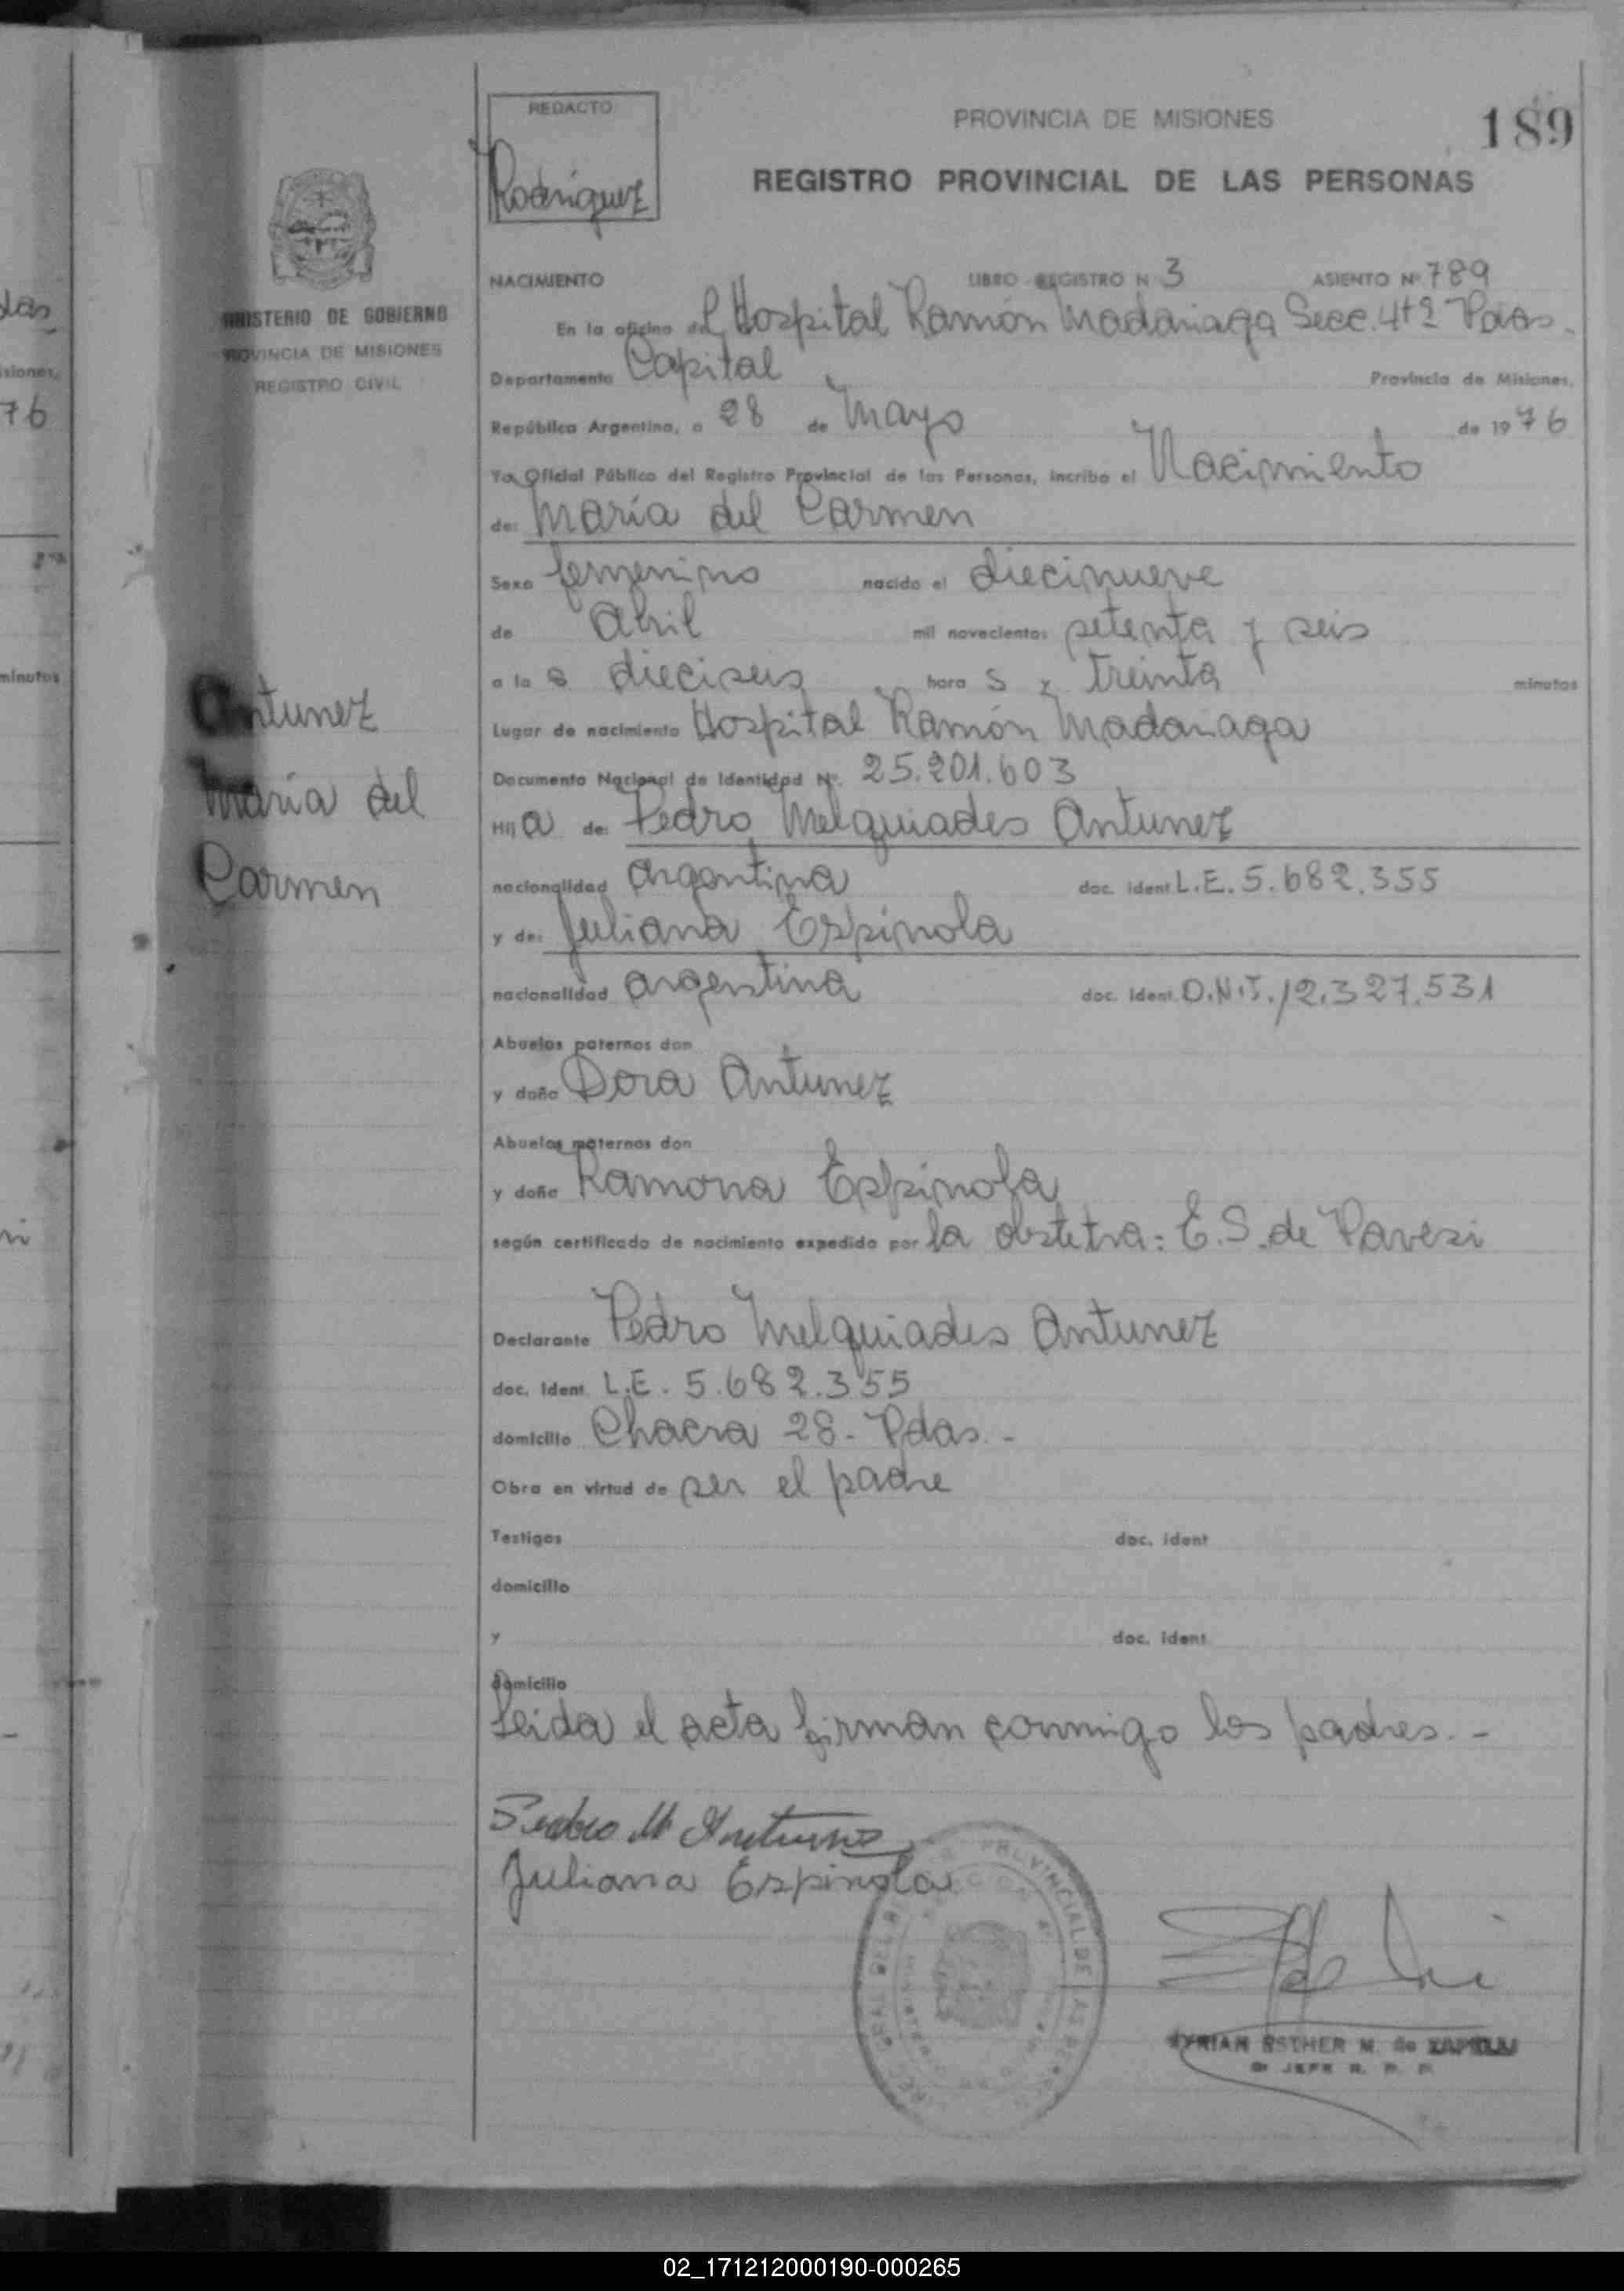 REDACTO
Rodriguez
PROVINCIA DE MISIONES
189
REGISTRO PROVINCIAL DE LAS PERSONAS
MINISTERIO DE GOBIERNO
PROVINCIA DE MISIONES
REGISTRO CIVIL
NACIMIENTO LIBRO - REGISTRO N 3 ASIENTO Nº 789
En la oficina del Hospital Ramón Madariaga Secc. 4ta Pdas.
Departamento Capital Provincia de Misiones,
República Argentina, a 28 de Mayo de 1976
Yo, Oficial Público del Registro Provincial de las Personas, incribo el Nacimiento
de: María del Carmen
Sexo femenino nacido el diecinueve
de Abril mil novecientos setenta y seis
a las dieciseis horas y treinta minutos
Antunez
María del
Carmen
Lugar de nacimiento Hospital Ramón Madariaga
Documento Nacional de Identidad Nº. 25.201.603
Hija de: Pedro Melquiades Antunez
nacionalidad argentina doc. ident L.E. 5.682.355
y de: Juliana Espínola
nacionalidad argentina doc. ident. D.N.I. 12.327.531
Abuelos paternos don
y doña Dora Antunez
Abuelos maternos don
y doña Ramona Espínola
según certificado de nacimiento expedido por la obstetra: E.S. de Pavesi
Declarante Pedro Melquiades Antunez
doc. ident. L.E. 5.682.355
domicilio Chacra 28 - Pdas. -
Obra en virtud de ser el padre
Testigos doc. ident
domicilio
y doc. ident.
domicilio
Leida el acta firman conmigo los padres. -
Pedro M Antunez
Juliana Espinola
PROVINCIAL DE LAS
ESTHER M. de
JEFE R. P. P.
02_171212000190-000265